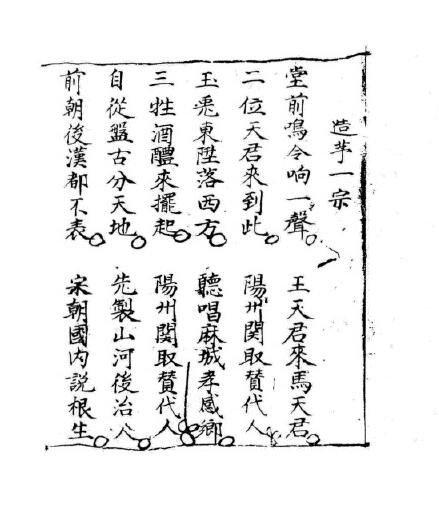 造茅一宗
堂前鳴令响一聲 王天君來馬天君
二位天君來到此 陽州関取賛代人
玉兎東陞落西方 聽唱麻城孝感鄉
三牲酒醴來擺起 陽州関取賛代人
自從盤古分天地 先製山河後治人
前朝後漢都不表 宋朝國内説根生